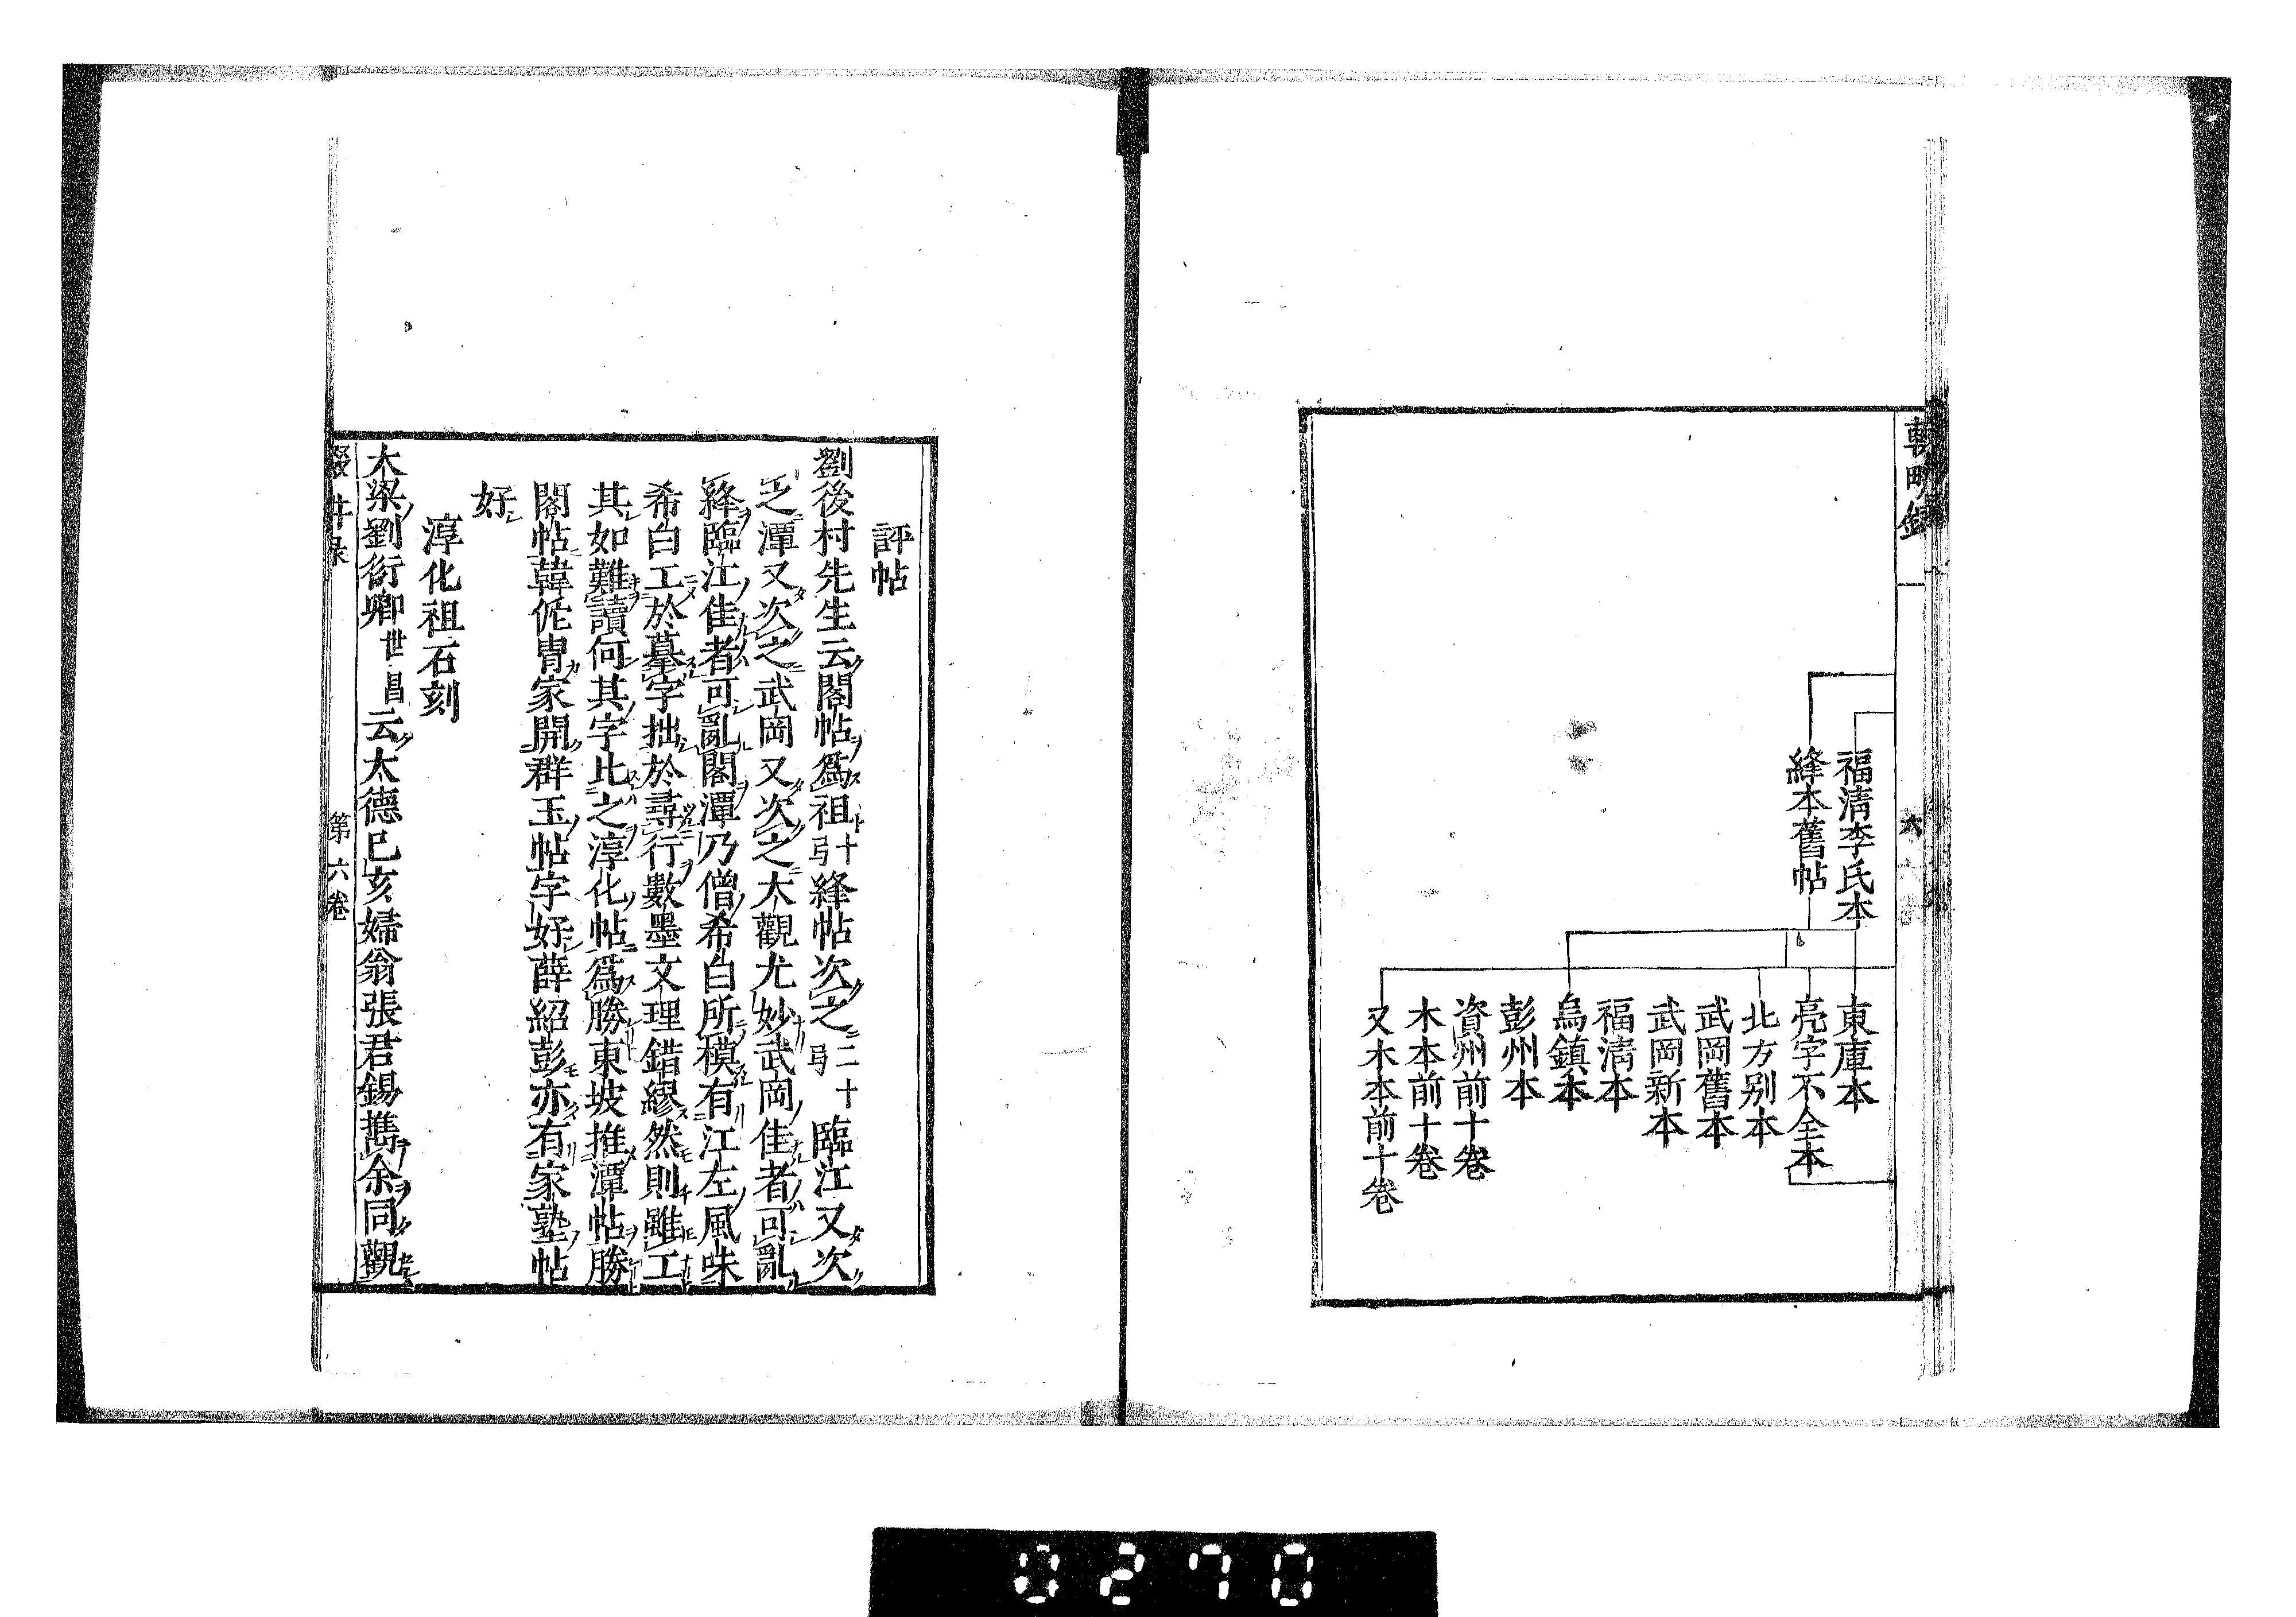 福清李氏本
絳本舊帖
東庫本
亮字不全本
北方别本
武岡舊本
武岡新本
福清本
烏鎮本
彭州本
資州前十卷
木本前十卷
又木本前十卷
評帖
劉後村先生云閣帖爲祖十弓絳帖次之二十弓臨江又次
之潭又次之武岡又次之大觀尤妙武岡佳者可亂
絳臨江佳者可亂閣潭乃僧希白所模有江左風味
希白工於摹字拙於尋行數墨文理錯繆然則雖工
其如難讀何其字此之淳化帖爲勝東坡推潭帖勝
閣帖韓侂冑家開群玉帖字好薛紹彭亦有家塾帖
好
淳化祖石刻
大梁劉衍卿世昌云太德已亥婦翁張君錫攜余同觀
第六卷
0270